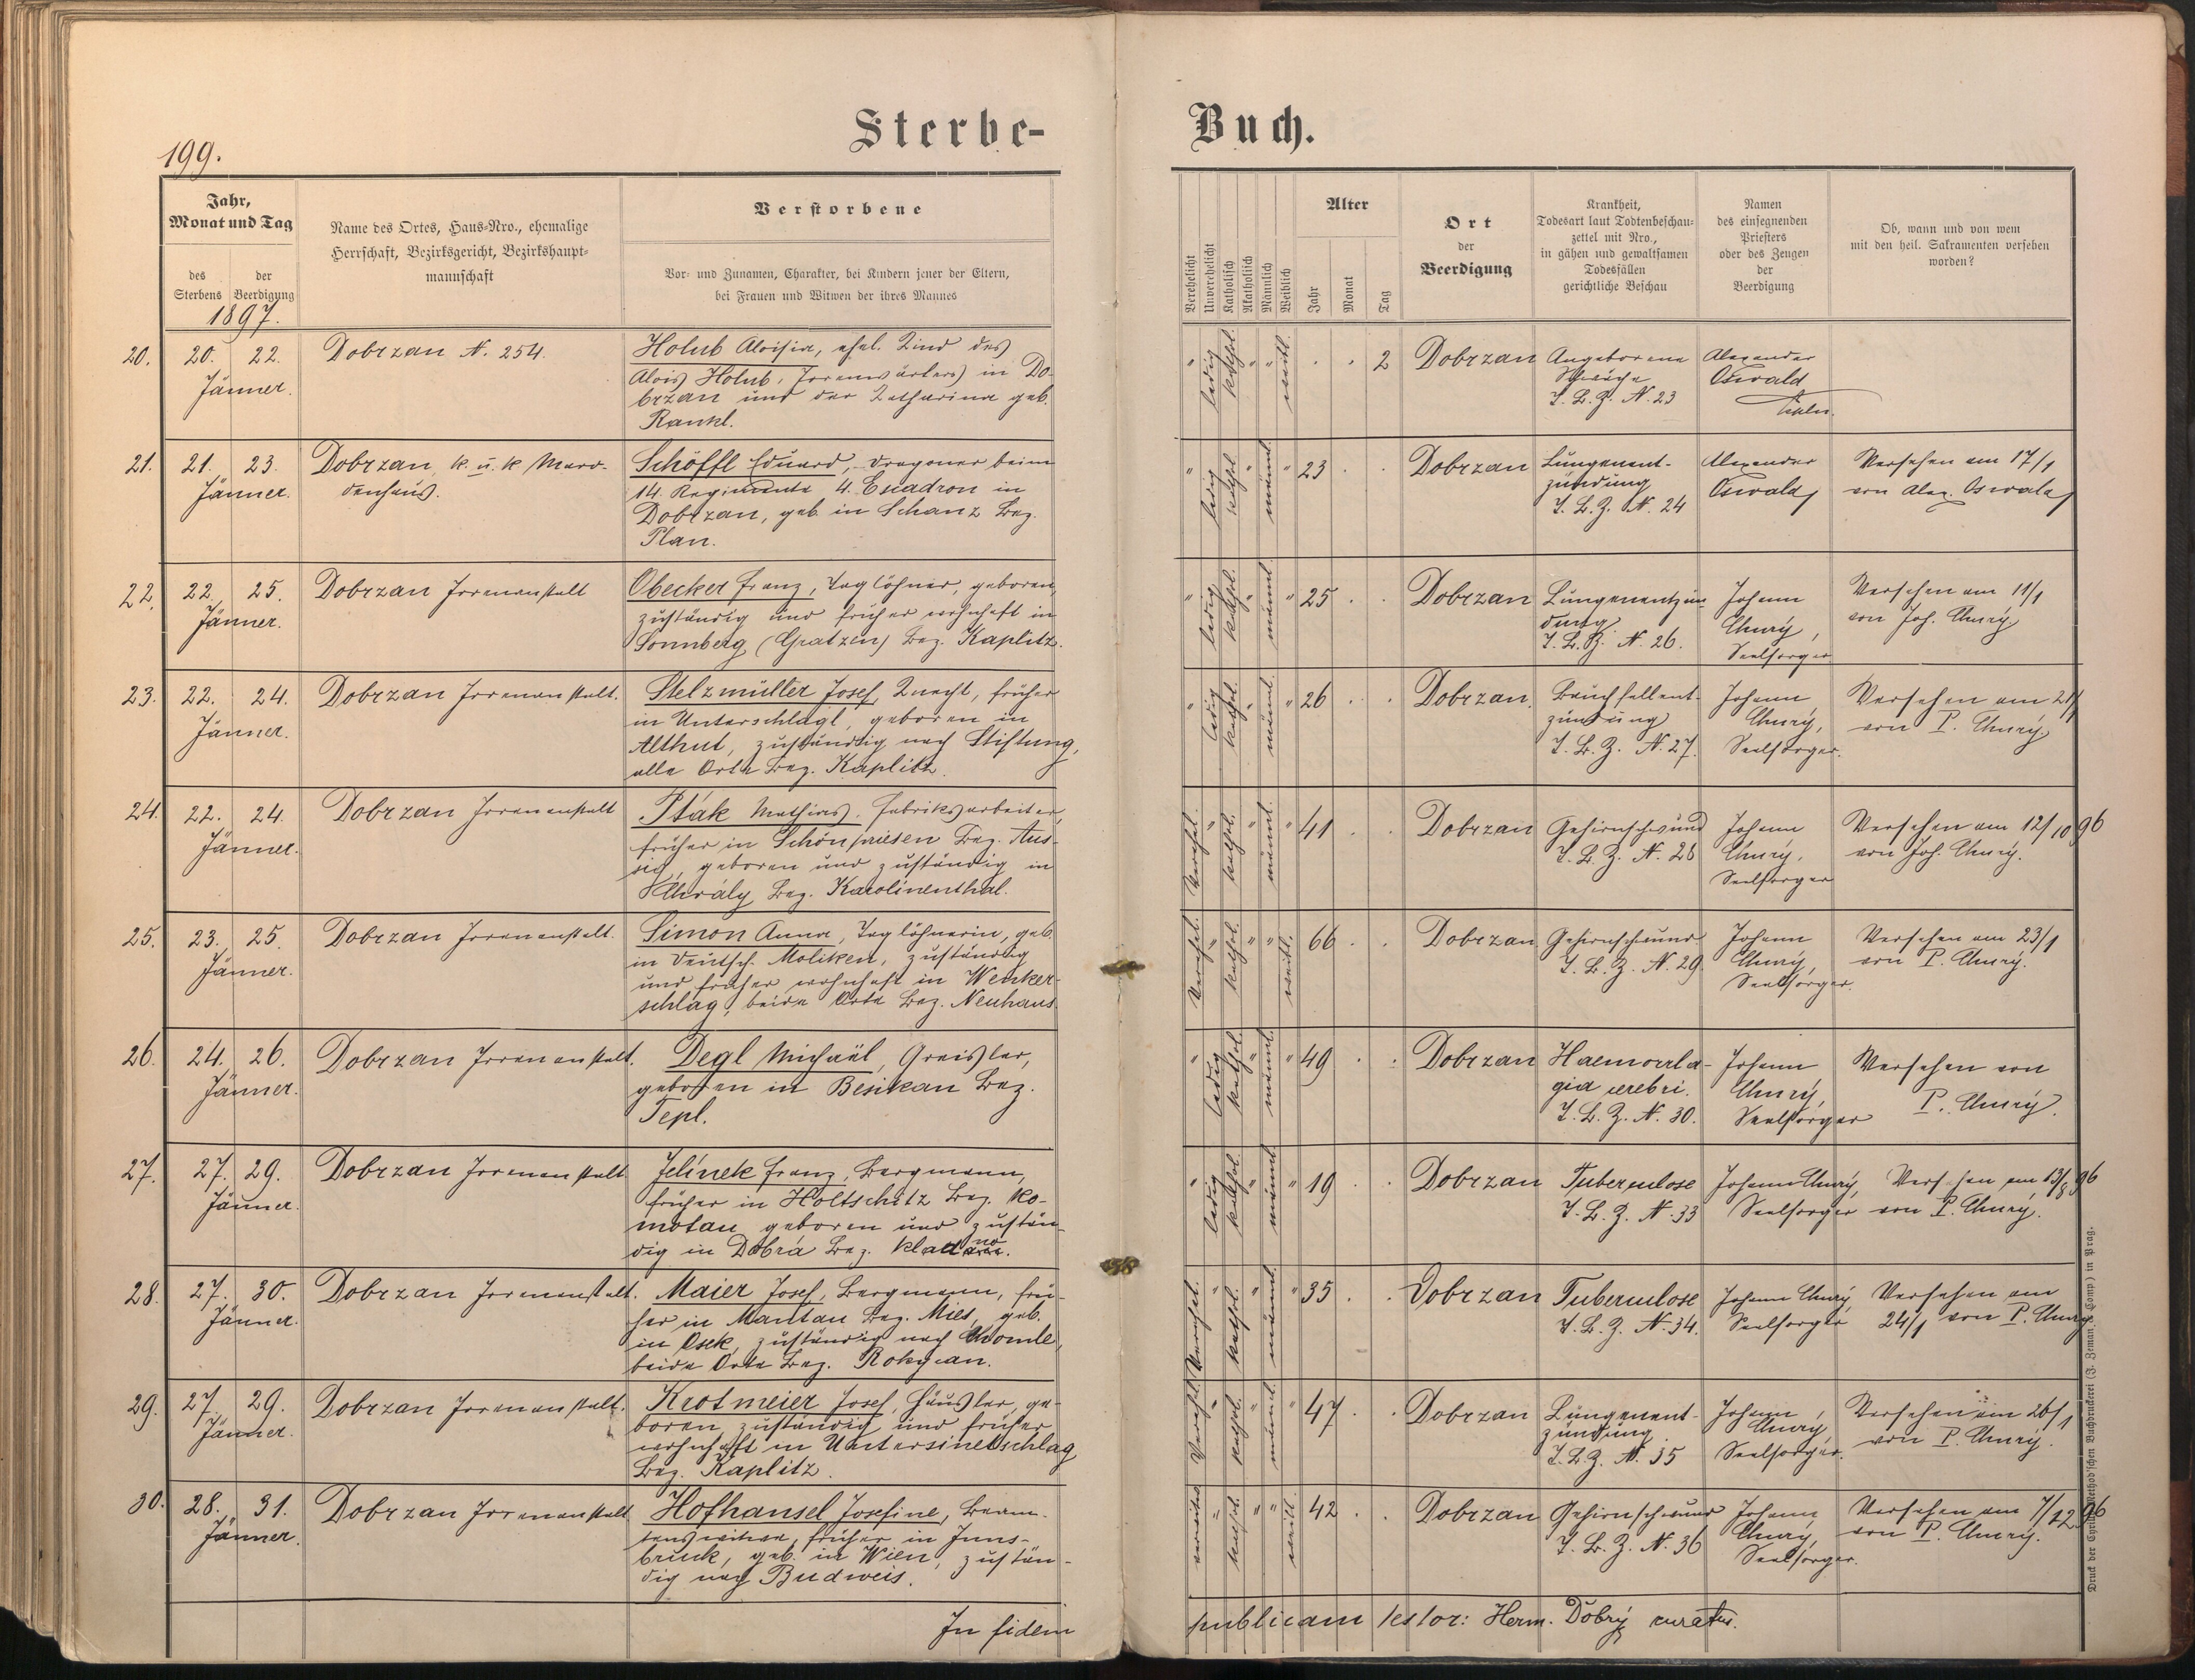 Sterbe-
Buch.
199.
Jahr,
Monat und Tag
des Sterbens
der Beerdigung
1897.
Name des Ortes, Haus-Nro., ehemalige
Herrschaft, Bezirksgericht, Bezirkshaupt-
mannschaft
Verstorbene
Vor- und Zunamen, Charakter, bei Kindern jener der Eltern,
bei Frauen und Witwen der ihres Mannes
Verehelicht
Unverehelicht
Katholisch
Akatholisch
Männlich
Weiblich
Alter
Jahr
Monat
Tag
Ort
der
Beerdigung
Krankheit,
Todesart laut Todtenbeschau-
zettel mit Nro.,
in gähen und gewaltsamen
Todesfällen
gerichtliche Beschau
Namen
des einsegnenden
Priesters
oder des Zeugen
der
Beerdigung
Ob, wann und von wem
mit den heil. Sakramenten versehen
worden?
20. 20. 22.
Jänner.
Dobrzan N. 254.
Holub Aloisia, ehel. Kind des
Alois Holub, Irrenwärters in Do-
brzan und der Katharina geb.
Rankl.
" ledig kathol. " " weibl. . . 2
Dobrzan
Angeborene
Schwäche
T. B. Z. N. 23
Alexander
Oswald
21. 21. 23.
Jänner.
Dobrzan, k. u. k. Maro-
denhaus.
Schöffl Eduard, Dragoner beim
14. Regimente 4. Escadron in
Dobrzan, geb. in Schanz Bez.
Plan.
" ledig kathol. " männl. " 23 . .
Dobrzan
Lungenent-
zündung
T. B. Z. N. 24
Alexander
Oswald
Versehen am 17/1
von Alex. Oswald
22. 22. 25.
Jänner.
Dobrzan Irrenanstalt
Obecker Franz, Taglöhner, geboren,
zuständig und früher wohnhaft in
Sonnberg (Gratzen) Bez. Kaplitz.
" ledig kathol. " männl. " 25 . .
Dobrzan
Lungenentzün-
dung
T. B. Z. N. 26.
Johann
Seelsorger
Versehen am 11/1
von Joh.
23. 22. 24.
Jänner.
Dobrzan Irrenanstalt.
Stelzmüller Josef, Knecht, früher
in Unterschlagl, geboren in
Althut, zuständig nach Stiftung,
alle Orte Bez. Kaplitz.
" ledig kathol. " männl. " 26 . .
Dobrzan.
Bauchfellent-
zündung
T. B. Z. N. 27.
Johann
Seelsorger.
Versehen am
von P.
24. 22. 24.
Jänner.
Dobrzan Irrenanstalt
Pták Mathias, Fabriksarbeiter,
früher in Schönpriesen Bez. Aus-
sig, geboren und zuständig in
Bez. Karolinenthal.
Verehel. " kathol. " männl. " 41 . .
Dobrzan
Gehirnschwund
T. B. Z. N. 28
Johann
Seelsorger
Versehen am 12/10 96
von Joh.
25. 23. 25.
Jänner.
Dobrzan Irrenanstalt.
Simon Anna, Taglöhnerin, geb.
in Deutsch. Moliken, zuständig
und früher wohnhaft in Wenker-
schlag, beide Orte Bez. Neuhaus.
Verehel. " kathol. " " weibl. 66 . .
Dobrzan
Gehirnschwund
T. B. Z. N. 29
Johann
Seelsorger.
Versehen am 23/1
von P.
26. 24. 26.
Jänner.
Dobrzan Irrenanstalt.
Degl Michaël, Greisler,
geboren in Besikau Bez.
Tepl.
" ledig kathol. " männl. " 49 . .
Dobrzan
Haemorrla-
gia cerebri.
T. B. Z. N. 30.
Johann
Seelsorger
Versehen von
P.
27. 27. 29.
Jänner.
Dobrzan Irrenanstalt
Jelínek Franz, Bergmann,
früher in Holtschitz Bez. Ko-
motau, geboren und zustän-
dig in Dobrá Bez. Kladno.
" ledig kathol. " männl. " 19 . .
Dobrzan
Tuberculose
T. B. Z. N. 33
Johann
Seelsorger
Versehen am 13/8 96
von P.
28. 27. 30.
Jänner.
Dobrzan Irrenanstalt.
Maier Josef, Bergmann, frü-
her in Mantau Bez. Mies, geb.
in Osek, zuständig nach
beide Orte Bez. Rokycan.
Verehel. " kathol. " männl. " 35 . .
Dobrzan
Tuberculose
T. B. Z. N. 34.
Johann
Seelsorger
Versehen am
24/1 von P.
29. 27. 29.
Jänner.
Dobrzan Irrenanstalt.
Krotmeier Josef, Häusler, ge-
boren, zuständig und früher
wohnhaft in Untersinetschlag
Bez. Kaplitz.
Verehel. " kathol. " männl. " 47 . .
Dobrzan
Lungenent-
zündung
T. B. Z. N. 35
Johann
Seelsorger.
Versehen am 26/1
von P.
30. 28. 31.
Jänner.
Dobrzan Irrenanstalt
Hofhansel Josefine, Beam-
tenswitwe, früher in Inns-
bruck, geb. in Wien, zustän-
dig nach Budweis.
verwitwet " kathol. " " weibl. 42 . .
Dobrzan
Gehirnschwund
T. B. Z. N. 36
Johann
Seelsorger.
Versehen am 7/12 96
von P.
In fidem
publicam testor: Herm. Dobrý curatus.
Druck der Cyrillo-Method'schen Buchdruckerei (J. Zeman & Comp.) in Prag.